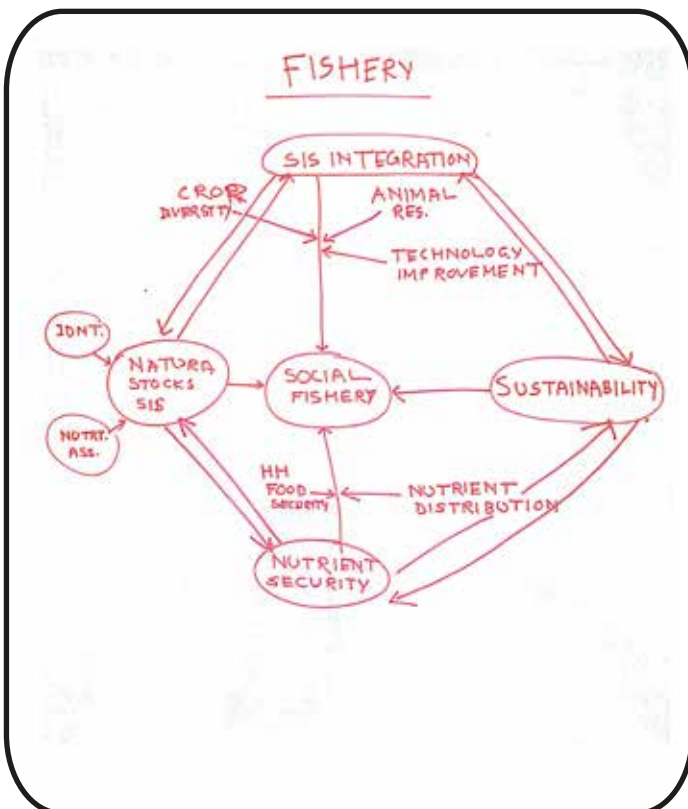 FISHERY
SIS INTEGRATION
CROP
DIVERSITY
ANIMAL
RES.
TECHNOLOGY
IMPROVEMENT
IDNT.
NATURA
STOCKS
SIS
SOCIAL
FISHERY
SUSTAINABILITY
NUTRT.
ASS.
HH
FOOD
SECURITY
NUTRIENT
DISTRIBUTION
NUTRIENT
SECURITY